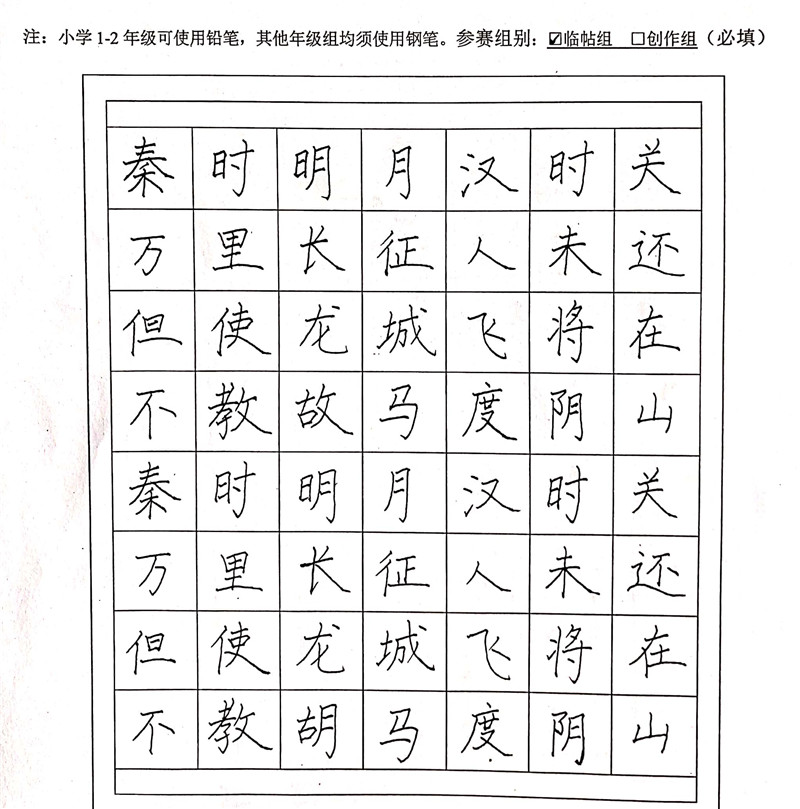 注：小学1-2年级可使用铅笔，其他年级组均须使用钢笔。参赛组别：☑临帖组 □创作组（必填）
秦时明月汉时关
万里长征人未还
但使龙城飞将在
不教故马度阴山
秦时明月汉时关
万里长征人未还
但使龙城飞将在
不教胡马度阴山